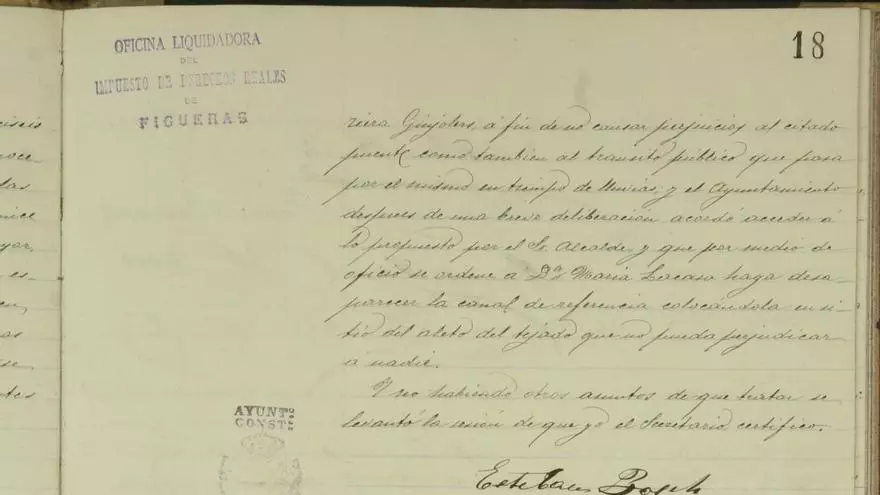 OFICINA LIQUIDADORA
DEL
IMPUESTO DE DERECHOS REALES
DE
FIGUERAS
18
riera Ginjolers, á fin de no causar perjuicios al citado
puente como tambien al tránsito público que pasa
por el mismo en tiempo de lluvias; y el Ayuntamiento
despues de una breve deliberación acordó acceder á
lo propuesto por el Sr. Alcalde y que por medio de
oficio se ordene á Dª Maria Lacasa haga desa-
parecer la canal de referencia colocándola en si-
tio del aleto del tejado que no pueda perjudicar
á nadie.
Y no habiendo otros asuntos de que tratar se
levantó la sesión de que yo el Secretario certifico.
AYUNTº
CONSTL
Esteban Bosch
noce
las
es-
en,
se